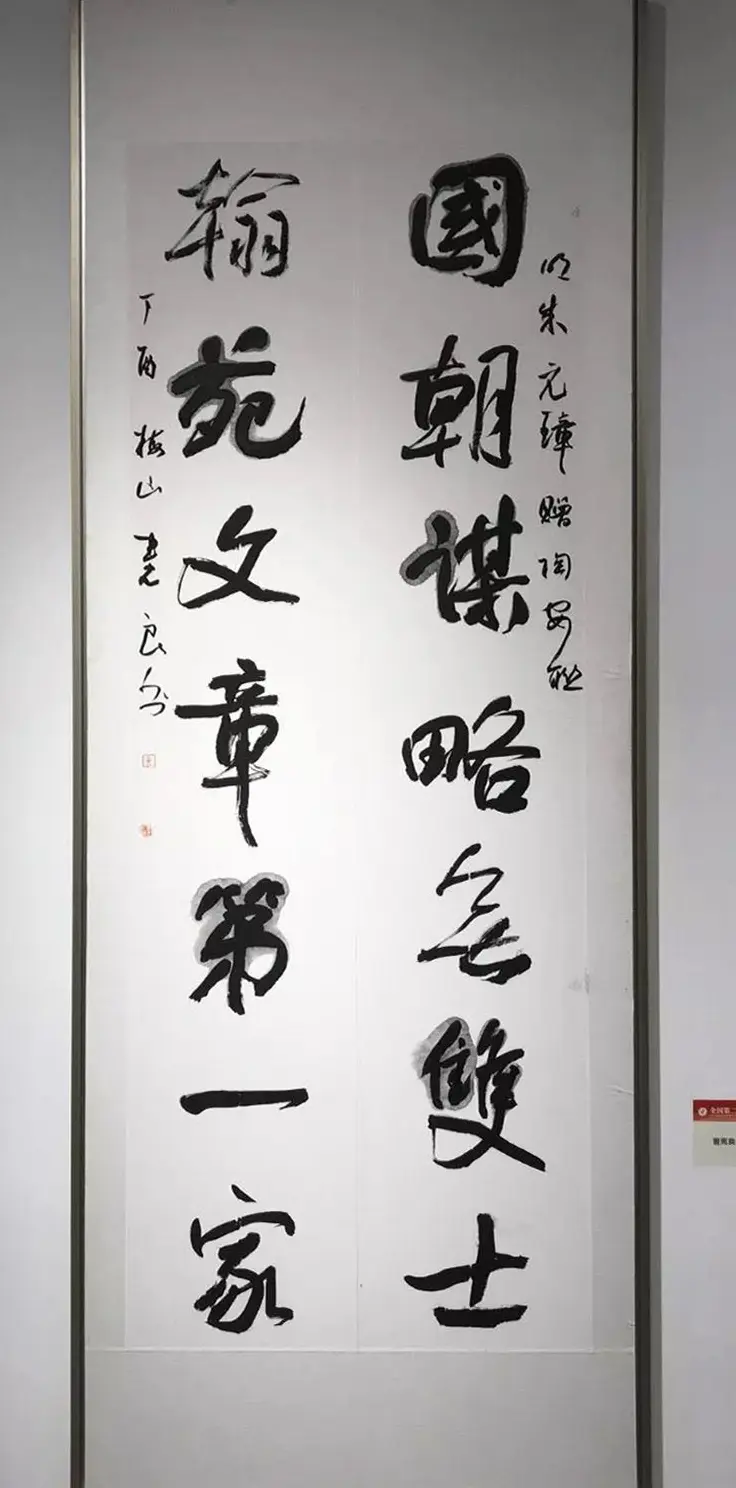 國朝謀略無雙士
明朱元璋贈陶安聯
翰苑文章第一家
丁酉梅山書良
全国第二